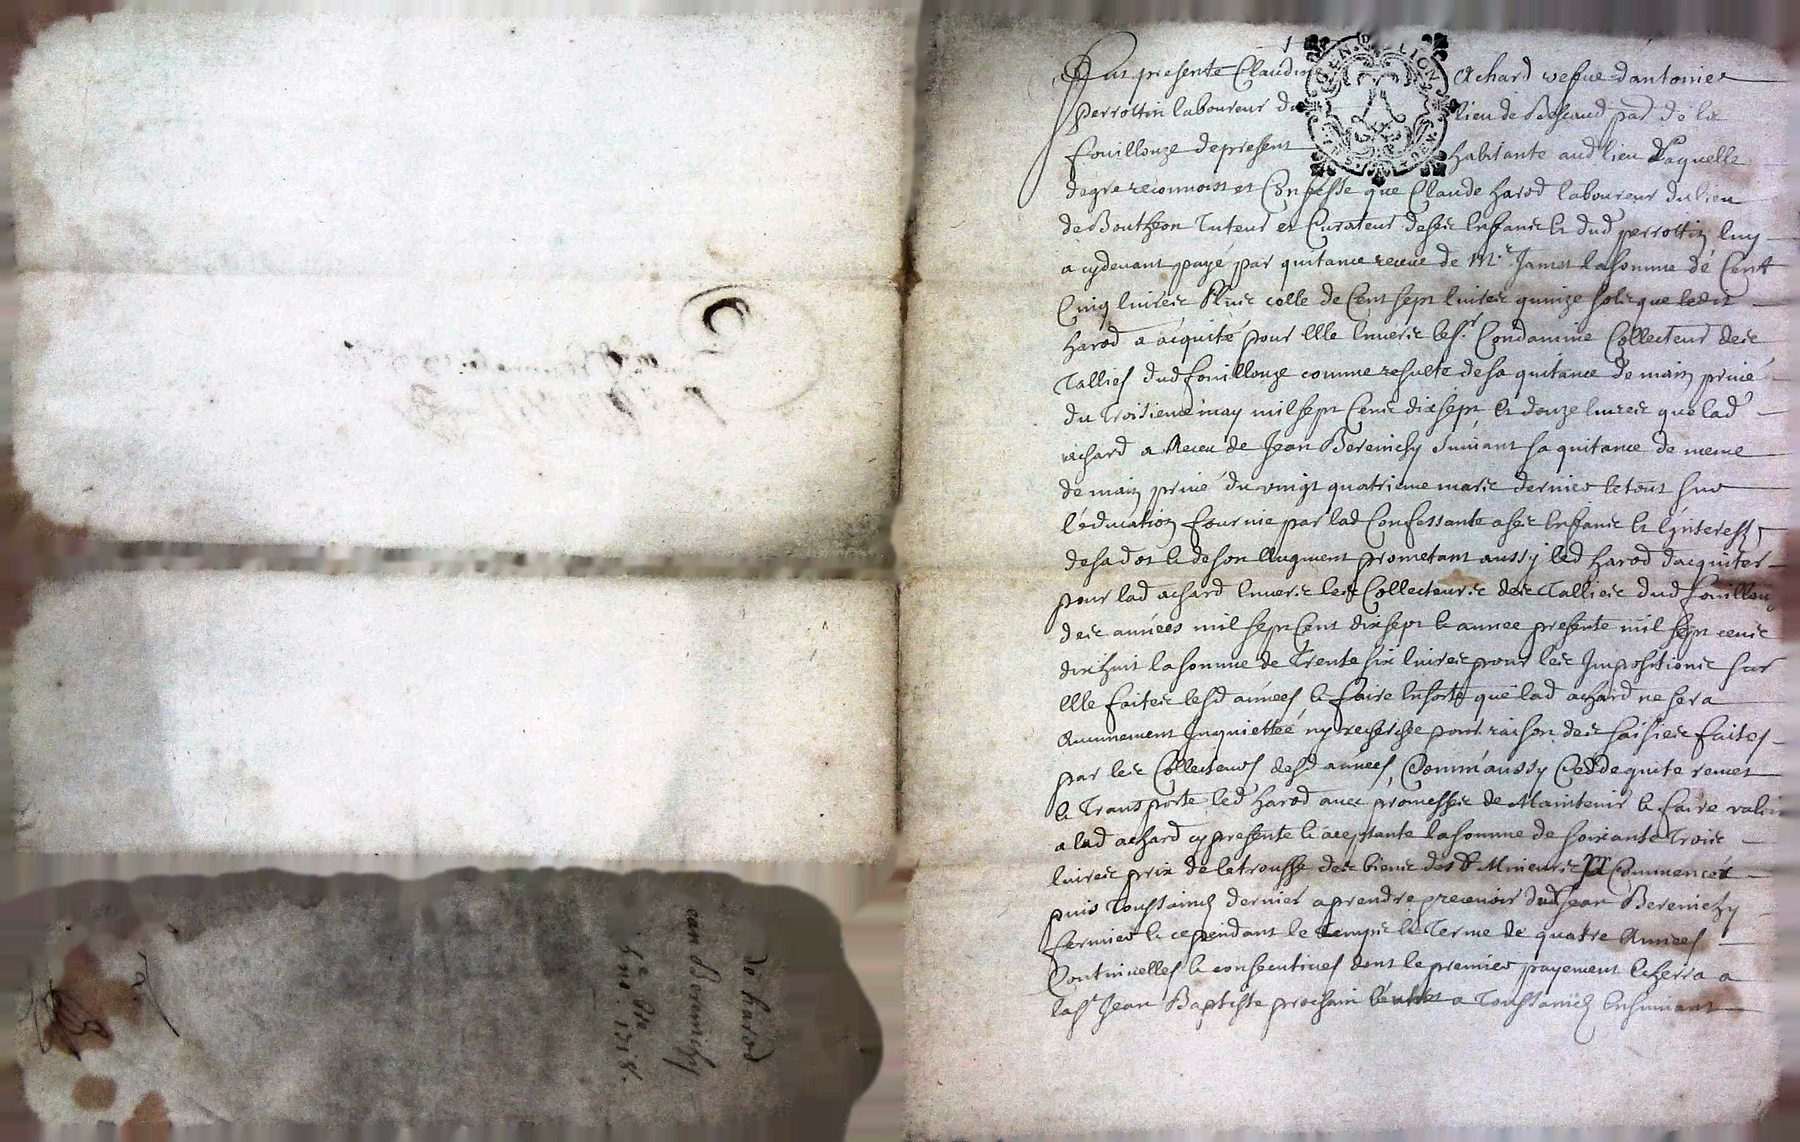 Fut presente Claudine Achard vefue d'antoine
perrottin laboureur du lieu de Bescaud par. de la
fouillouze depresent habitante aud lieu Laquelle
degre reconnoist et Confesse que Claude harod laboureur du lieu
de Boutheon Tuteur et Curateur desdis Enfans et dud perrottin luy
a cydevant payé par quitance receue de Mr. Jamet la somme de Cent
Cinq livres Plus celle de Cent sept livres quinze sols que ledit
harod a acquité pour Elle Envers le Sr. Condamine Collecteur des
Tallies dud fouillouze comme resulte de sa quitance de main privé
du troisieme may mil sept Cens dix sept et douze livres que lad
achard a Receu de Jean Berenichy suivant sa quitance de meme
de main privé du vingt quatrieme mars dernier le tout sur
l'education fournie par lad Confessante ases Enfans et l'interest
de sa dot et de son Augment prometant aussy led harod d'acquiter
pour lad achard Envers les Collecteurs des Tallies dud fouillouz
des années mil sept Cent dix sept et annee presente mil sept cens
dix huit la somme de Trente six livres pour les Impositions sur
Elle faites lesd années et faire Ensorte que lad achard ne sera
Aucunement Inquiettée ny recherchée pour raison des saisies faites
par les Collecteurs desd années, Comm'aussy Cedde quite remet
et Transporte led harod avec promesses de Maintenir et faire valoir
a lad achard cy presente et aceptante la somme de soixante Trois
livres prix de letrousse des biens desd Mineurs Commencée
puis Toussainct dernier aprendre precevoir dud Jean Berenichy
fermier et cependant le temps et Terme de quatre Années
Continuelles et consecutives dont le premier payement Echerra a
la St Jean Baptiste prochain l'autre a Toussainct Ensuivant
de harod
Jan Berenichy
1718.